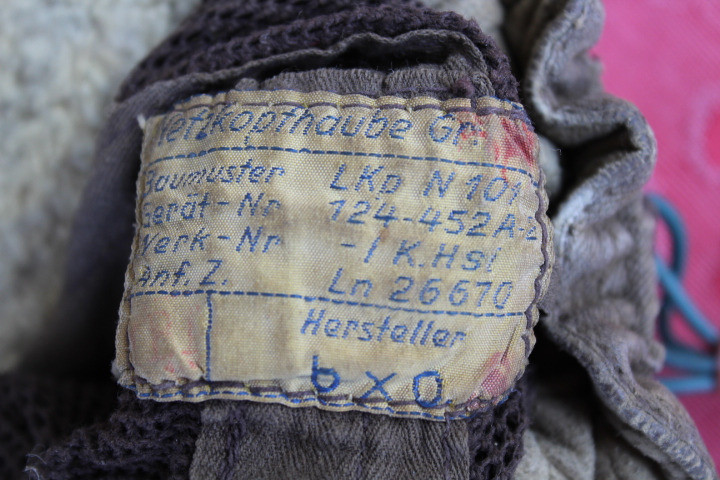 Netzkopfhaube Gr.
Baumuster LKp N 101
Gerät-Nr 124-452A-2
Werk-Nr -/ K.Hgl
Anf.Z. Ln 26670
Hersteller
bxo